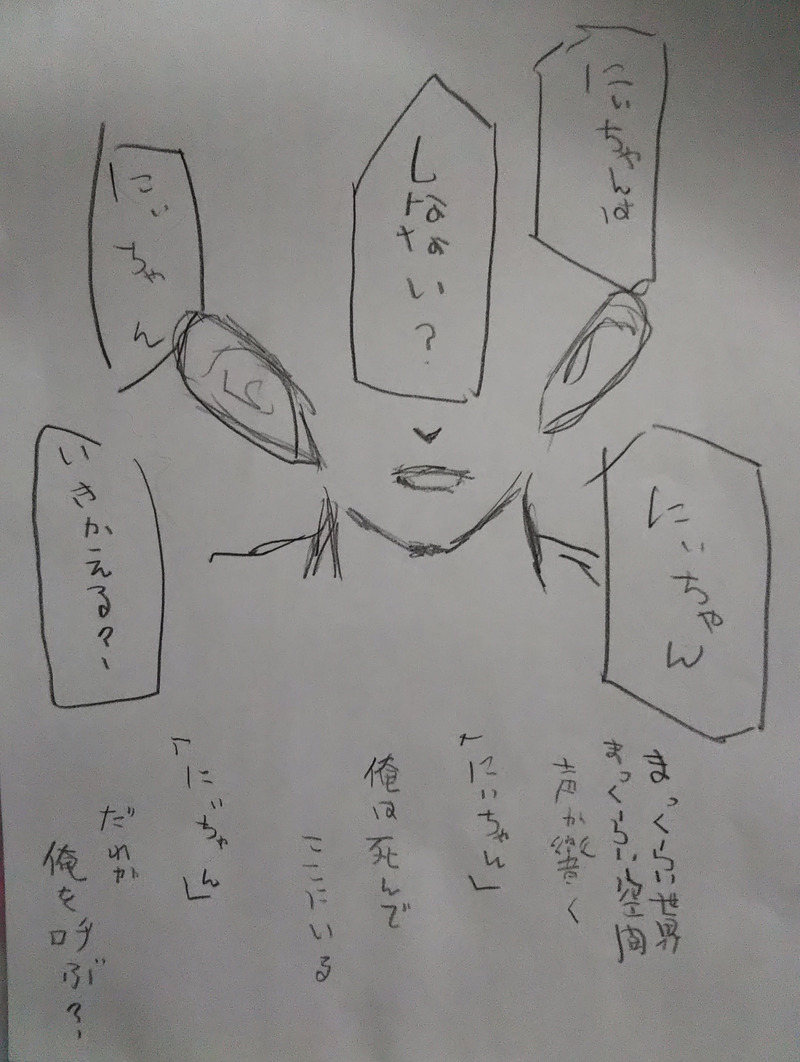 にいちゃんは
しなない？
にぃちゃん
にぃちゃん
いきかえる？
まっくらい世界
まっくらい空間
声が響く
「にいちゃん」
俺は死んで
ここにいる
「にぃちゃん」
だれか
俺を呼ぶ？